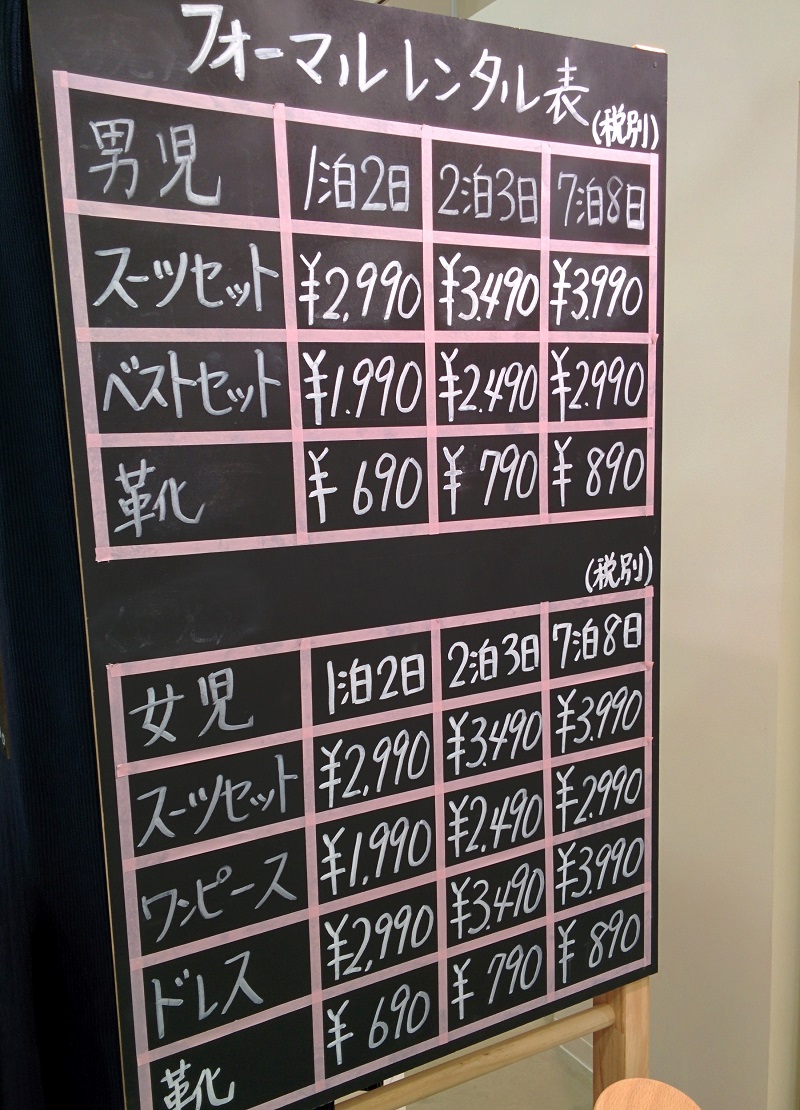 フォーマルレンタル表
(税別)
男児 1泊2日 2泊3日 7泊8日
スーツセット ¥2,990 ¥3.490 ¥3.990
ベストセット ¥1.990 ¥2.490 ¥2.990
靴 ¥690 ¥790 ¥890
(税別)
女児 1泊2日 2泊3日 7泊8日
スーツセット ¥2,990 ¥3.490 ¥3.990
ワンピース ¥1,990 ¥2.490 ¥2.990
ドレス ¥2,990 ¥3.490 ¥3.990
靴 ¥690 ¥790 ¥890